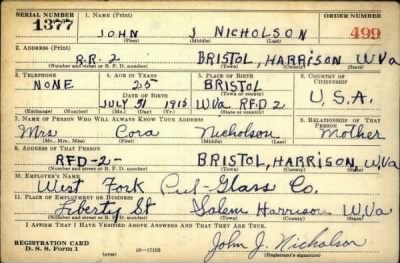 SERIAL NUMBER 1. NAME (Print) ORDER NUMBER
1377 JOHN J NICHOLSON 499
(First) (Middle) (Last)
2. ADDRESS (Print)
R.R. 2 BRISTOL, HARRISON W.Va
(Number and street or R. F. D. number) (Town) (County) (State)
3. TELEPHONE 4. AGE IN YEARS 5. PLACE OF BIRTH 6. COUNTRY OF CITIZENSHIP
NONE 25 BRISTOL
DATE OF BIRTH (Town or county) U.S.A.
JULY 31 1915 W.Va RFD 2
(Exchange) (Number) (Mo.) (Day) (Yr.) (State or country)
7. NAME OF PERSON WHO WILL ALWAYS KNOW YOUR ADDRESS 8. RELATIONSHIP OF THAT PERSON
Mrs Cora Nicholson Mother
(Mr., Mrs., Miss) (First) (Middle) (Last)
9. ADDRESS OF THAT PERSON
RFD-2- BRISTOL, HARRISON, W.Va
(Number and street or R. F. D. number) (Town) (County) (State)
10. EMPLOYER'S NAME
West Fork Cut-Glass Co.
11. PLACE OF EMPLOYMENT OR BUSINESS
Liberty St Salem Harrison W Va
(Number and street or R. F. D. number) (Town) (County) (State)
I AFFIRM THAT I HAVE VERIFIED ABOVE ANSWERS AND THAT THEY ARE TRUE.
REGISTRATION CARD John J. Nicholson
D. S. S. Form 1 (over) 16-17105 (Registrant's signature)